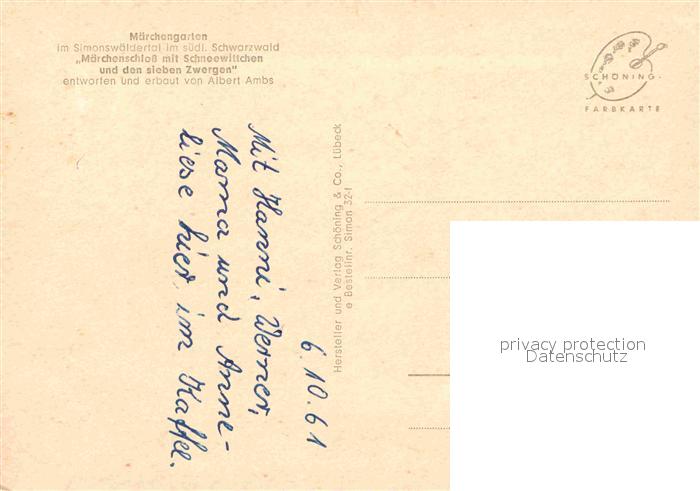 Märchengarten
im Simonswäldertal im südl. Schwarzwald
„Märchenschloß mit Schneewittchen
und den sieben Zwergen"
entworfen und erbaut von Albert Ambs
SCHÖNING.
FARBKARTE
Hersteller und Verlag Schöning & Co., Lübeck
e Bestellnr. Siman 32-f
6.10.61
Mit Hanni, Werner,
Mama und Anne-
liese hier im Kaffee.
privacy protection
Datenschutz